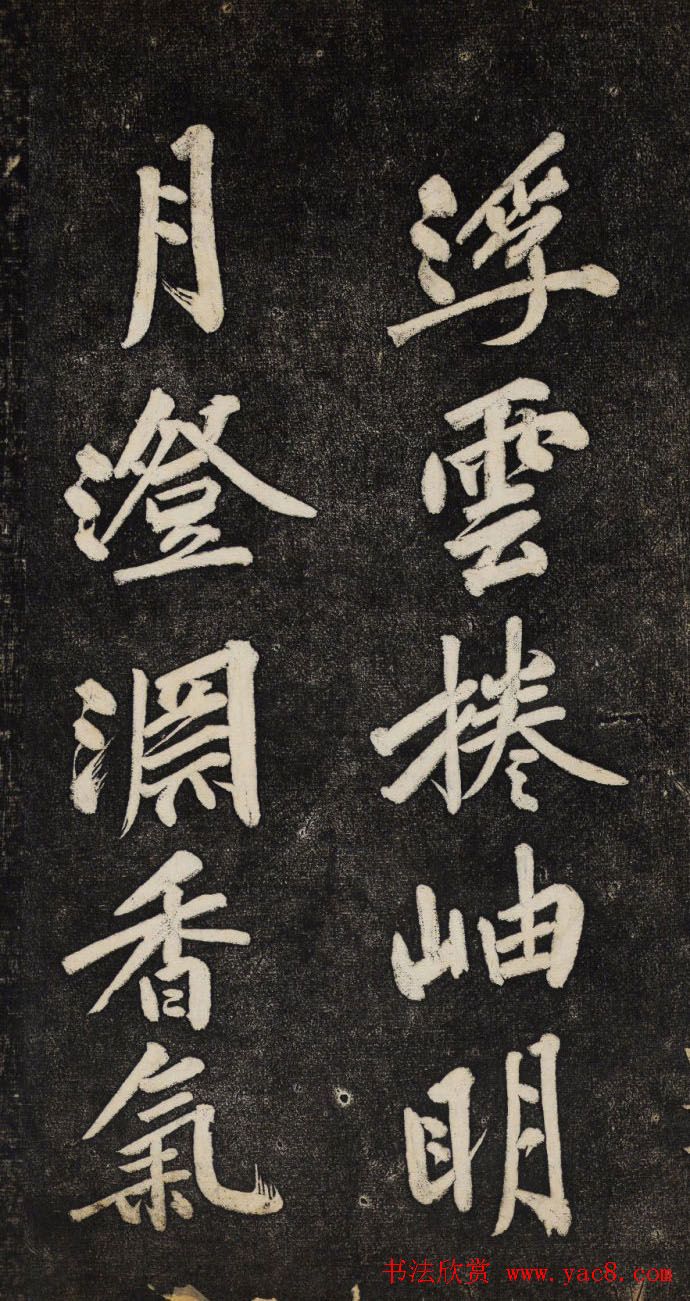 浮雲捲岫明
月澄淵香氣
书法欣赏 www.yac8.com